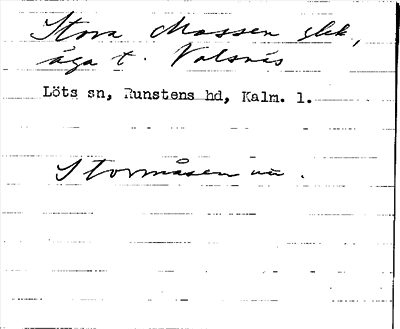 Stora Mossen glek,
äga t. Valsnäs
Löts sn, Runstens hd, Kalm. l.
Stormåsen